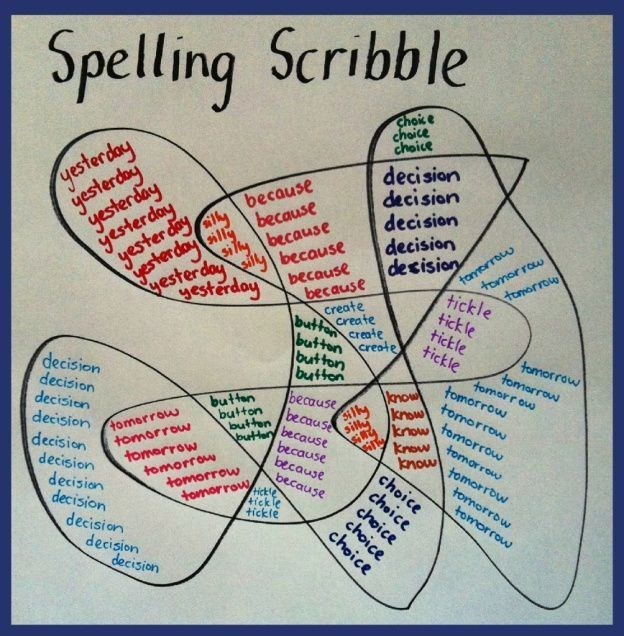 Spelling Scribble
yesterday
yesterday
yesterday
yesterday
yesterday
yesterday
yesterday
yesterday
silly
silly
silly
silly
because
because
because
because
because
because
choice
choice
choice
decision
decision
decision
decision
decision
tomorrow
tomorrow
tomorrow
create
create
create
create
tickle
tickle
tickle
tickle
button
button
button
button
tomorrow
tomorrow
tomorrow
tomorrow
tomorrow
tomorrow
tomorrow
tomorrow
tomorrow
tomorrow
decision
decision
decision
decision
decision
decision
decision
decision
decision
decision
decision
tomorrow
tomorrow
tomorrow
tomorrow
tomorrow
tomorrow
button
button
button
button
because
because
because
because
because
because
silly
silly
silly
silly
know
know
know
know
know
tickle
tickle
tickle
choice
choice
choice
choice
choice